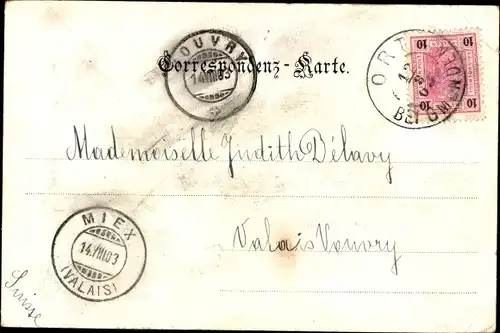 VOUVRY
14.VIII.03
Correspondenz-Karte.
10 10
10 10
Mademoiselle Judith Délavy
MIEX
14.VIII.03
(VALAIS)
Valais Vouvry
Suisse